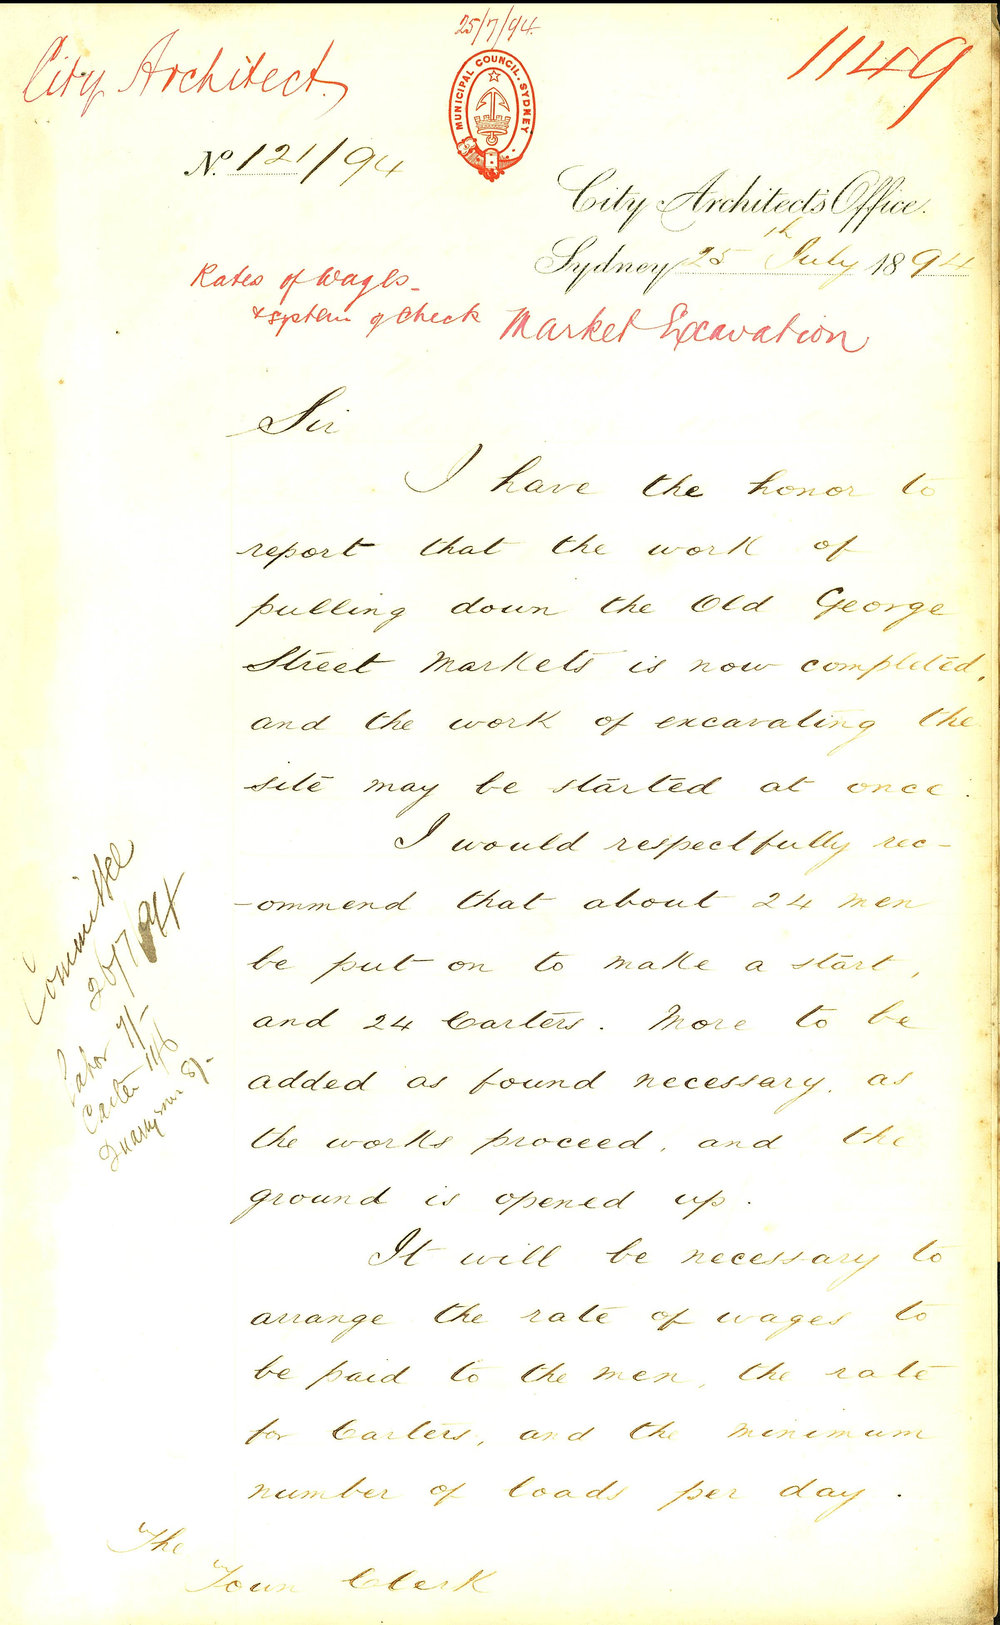 25/7/94.
City Architect
1149
MUNICIPAL COUNCIL. SYDNEY
No. 121/94
City Architect's Office.
Sydney 25th July 1894
Rates of Wages -
& system of check
Market Excavation
Sir
I have the honor to
report that the work of
pulling down the Old George
Street Markets is now completed,
and the work of excavating the
site may be started at once.
I would respectfully rec-
-ommend that about 24 men
be put on to make a start,
and 24 Carters. More to be
added as found necessary, as
the works proceed, and the
ground is opened up.
It will be necessary to
arrange the rate of wages to
be paid to the men, the rate
for Carters, and the minimum
number of loads per day.
The
Town Clerk
Committee
26/7/94
Labor 7/-
Carter 11/6
Quarrymen 8/-